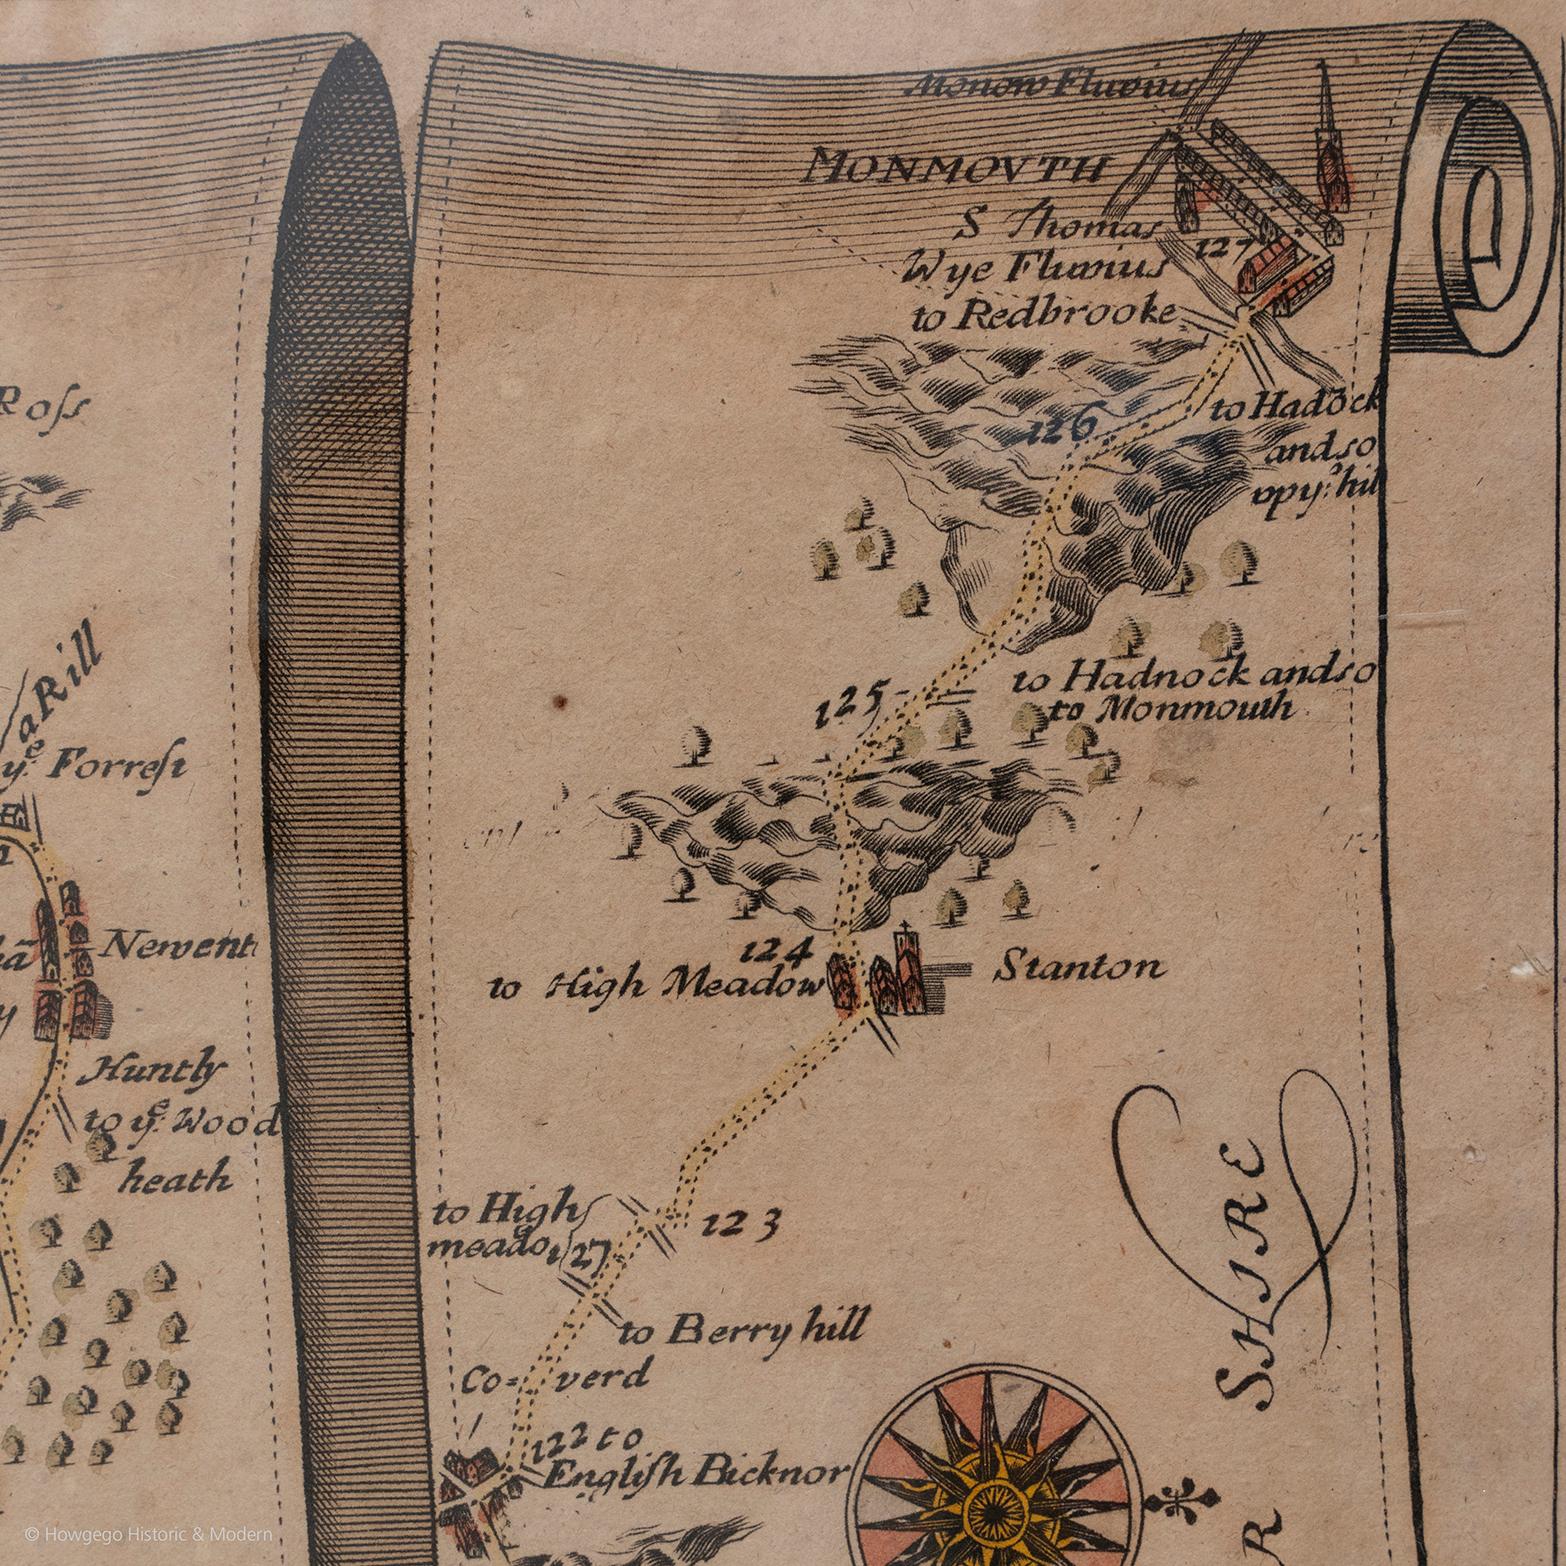 Roſs
aRill
yᵉ Forreſt
Newent
Huntly
to yᵉ Wood
heath
Monow Fluvius
MONMOVTH
S Thomas
127
Wye Fluvius
to Redbrooke
to Hadōck
and so
vpy: hil
126
to Hadnock and so
to Monmouth
125
124
to High Meadow
Stanton
123
to High
meado
127
to Berry hill
Co=verd
122 to
Engliſh Bicknor
SHIRE
R
© Howgego Historic & Modern